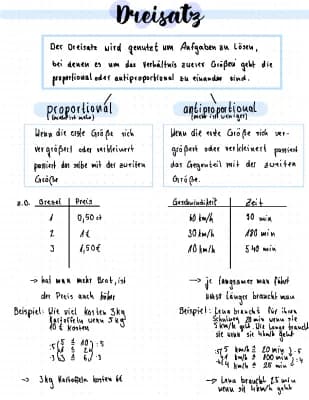 Dreisatz
Der Dreisatz wird genutzt um Aufgaben zu lösen,
bei denen es um das Verhältnis zweier Größen geht die
proportional oder antiproportional zu einander sind.
proportional
(mehr ist mehr)
Wenn die erste Größe sich
vergrößert oder verkleinert
passiert das selbe mit der zweiten
Größe
antiproportional
(mehr ist weniger)
Wenn die erste Größe sich ver-
größert oder verkleinert passiert
das Gegenteil mit der zweiten
Größe.
z.B. Brezel Preis
1 0,50 ct
2 1€
3 1,50€
→ hat man mehr Brot, ist
der Preis auch höher
Beispiel: Wie viel kosten 3kg
Kartoffeln wenn 5 kg
10 € kosten
:5 5 ≙ 10 :5
1 ≙ 2
·3 3 ≙ 6 ·3
→ 3kg Kartoffeln kosten 6€
Geschwindigkeit Zeit
60 km/h 90 min
30 km/h 180 min
10 km/h 540 min
→ je langsamer man fährt
umso länger braucht man
Beispiel: Lena braucht für ihren
Schulweg 20 min wenn sie
5 km/h geht. Wie lange braucht
sie wenn sie 4km/h geht
:5 5 km/h ≙ 20 min ·5
1 km/h ≙ 100 min
·4 4 km/h ≙ 25 min :4
→ Lena braucht 25 min
wenn sie 4km/h geht